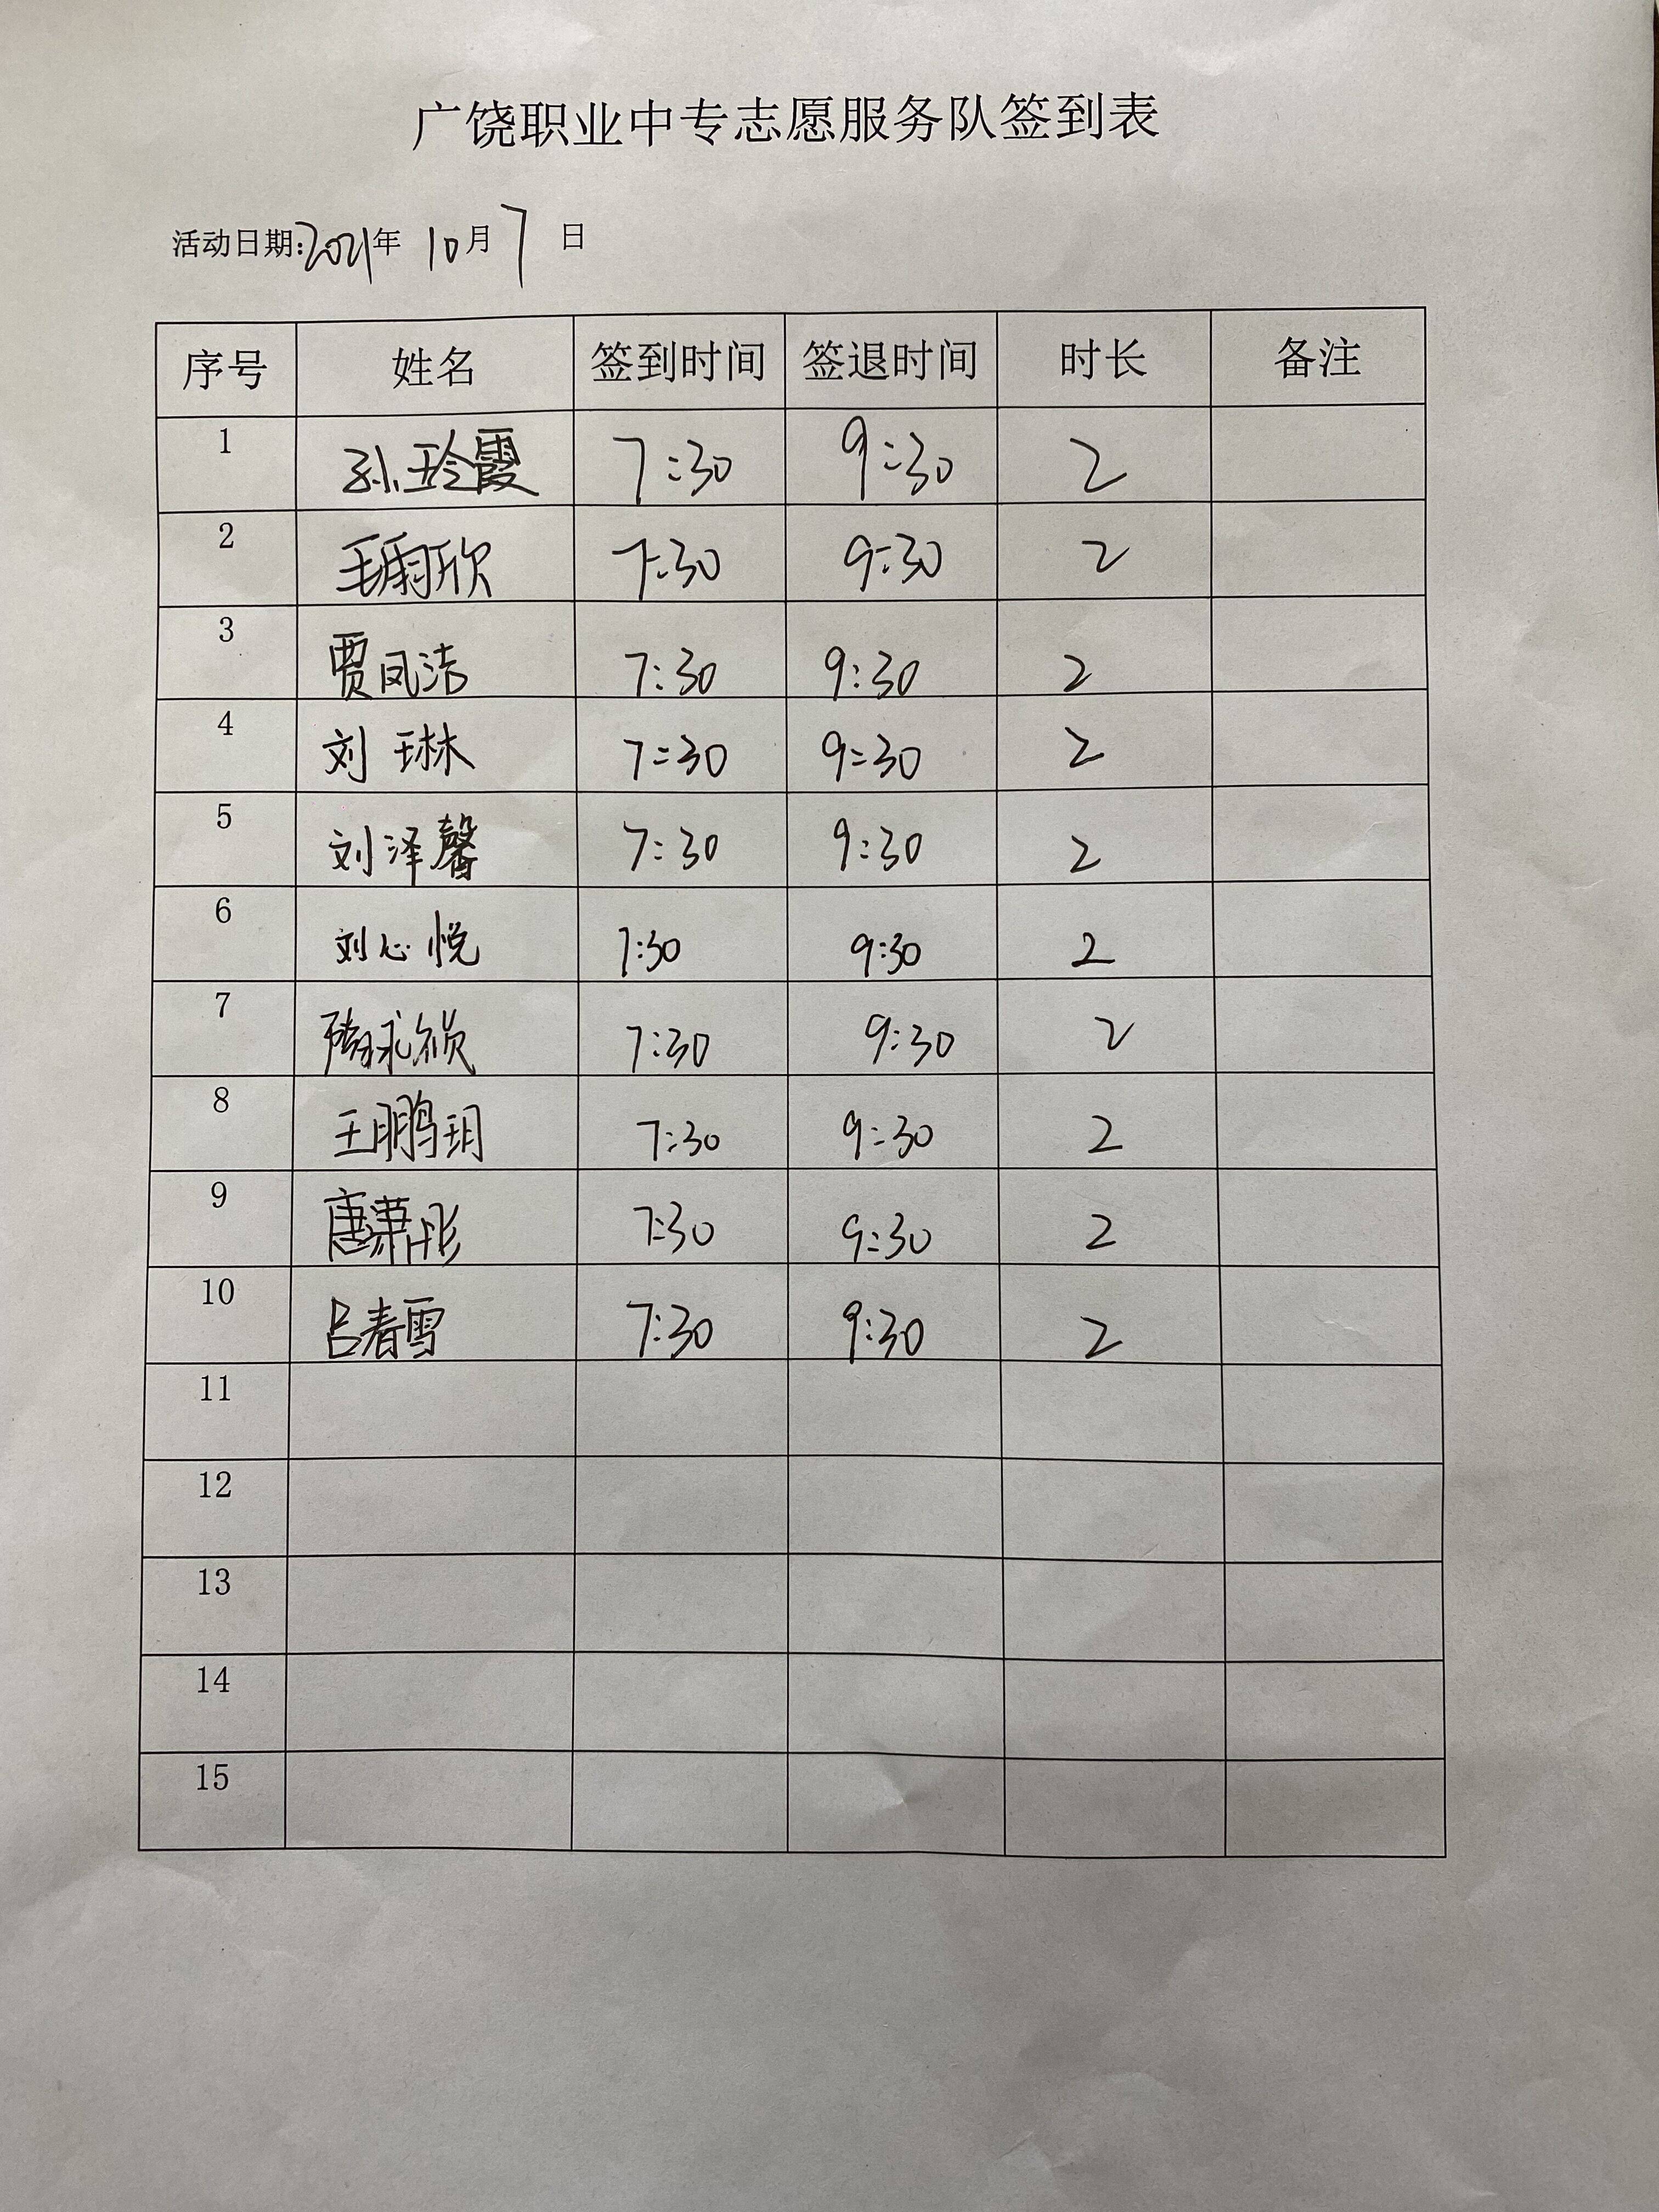 广饶职业中专志愿服务队签到表
活动日期:2021年 10月 7 日
序号 姓名 签到时间 签退时间 时长 备注
1 孙玲霞 7:30 9:30 2
2 毛雨欣 7:30 9:30 2
3 贾凤洁 7:30 9:30 2
4 刘琳 7:30 9:30 2
5 刘泽馨 7:30 9:30 2
6 刘心悦 7:30 9:30 2
7 7:30 9:30 2
8 王鹏玥 7:30 9:30 2
9 唐潇彤 7:30 9:30 2
10 吕春雪 7:30 9:30 2
11
12
13
14
15